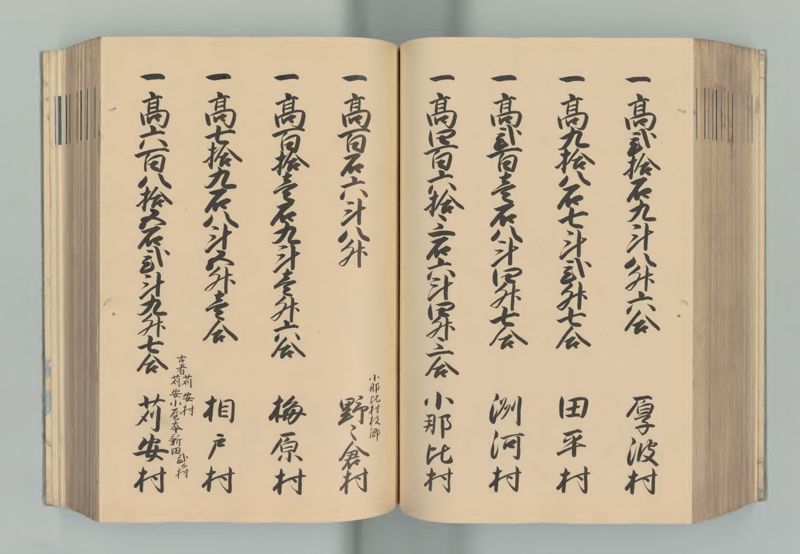 一高弐拾石九斗八升六合 厚波村
一高九拾八石七斗弐升七合 田平村
一高弐百壱石八斗四升七合 洌河村
一高四百六拾三石六斗四升三合 小那比村
小那比村枝郷
一高百石六斗八升 野々倉村
一高百拾壱石九斗壱升六合 梅原村
一高七拾九石八斗五升壱合 相戸村
古者苅安村
苅安小屋本新田弐ヶ村
一高六百八拾五石弐斗九升七合 苅安村